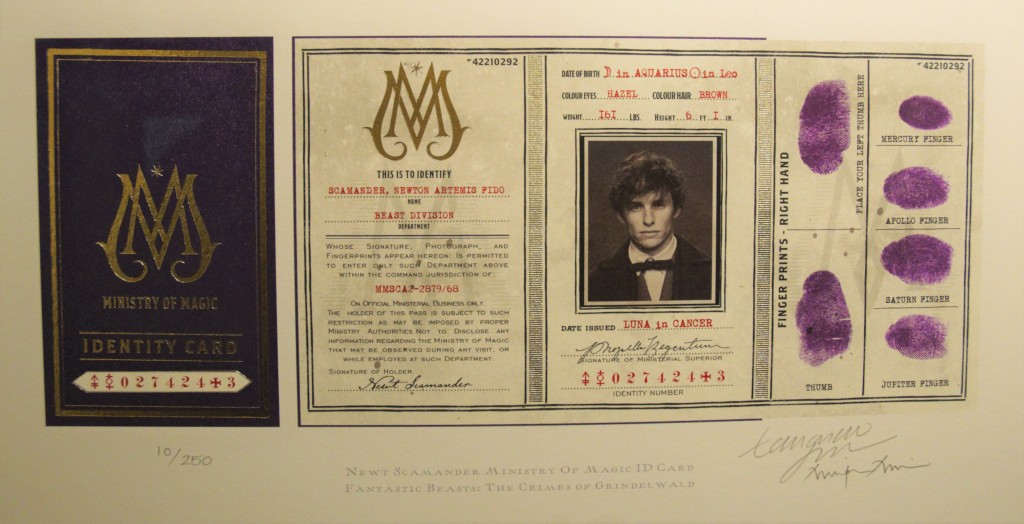 MINISTRY OF MAGIC
IDENTITY CARD
027424✠3
10/250
№42210292
THIS IS TO IDENTIFY
SCAMANDER, NEWTON ARTEMIS FIDO
NAME
BEAST DIVISION
DEPARTMENT
WHOSE SIGNATURE, PHOTOGRAPH, AND
FINGERPRINTS APPEAR HEREON: IS PERMITTED
TO ENTER ONLY SUCH DEPARTMENT ABOVE
WITHIN THE COMMAND JURISDICTION OF:
MMSCA2-2879/68
ON OFFICIAL MINISTERIAL BUSINESS ONLY
THE HOLDER OF THIS PASS IS SUBJECT TO SUCH
RESTRICTION AS MAY BE IMPOSED BY PROPER
MINISTRY AUTHORITIES. NOT TO DISCLOSE ANY
INFORMATION REGARDING THE MINISTRY OF MAGIC
THAT MAY BE OBSERVED DURING ANY VISIT, OR
WHILE EMPLOYED AT SUCH DEPARTMENT.
SIGNATURE OF HOLDER
Newt Scamander
DATE OF BIRTH ☽ in AQUARIUS ☉ in Leo
COLOUR EYES HAZEL COLOUR HAIR BROWN
WEIGHT 161 LBS. HEIGHT 6 FT 1 IN.
DATE ISSUED LUNA in CANCER
SIGNATURE OF MINISTERIAL SUPERIOR
027424✠3
IDENTITY NUMBER
FINGER PRINTS - RIGHT HAND
THUMB
PLACE YOUR LEFT THUMB HERE
№42210292
MERCURY FINGER
APOLLO FINGER
SATURN FINGER
JUPITER FINGER
NEWT SCAMANDER MINISTRY OF MAGIC ID CARD
FANTASTIC BEASTS: THE CRIMES OF GRINDELWALD